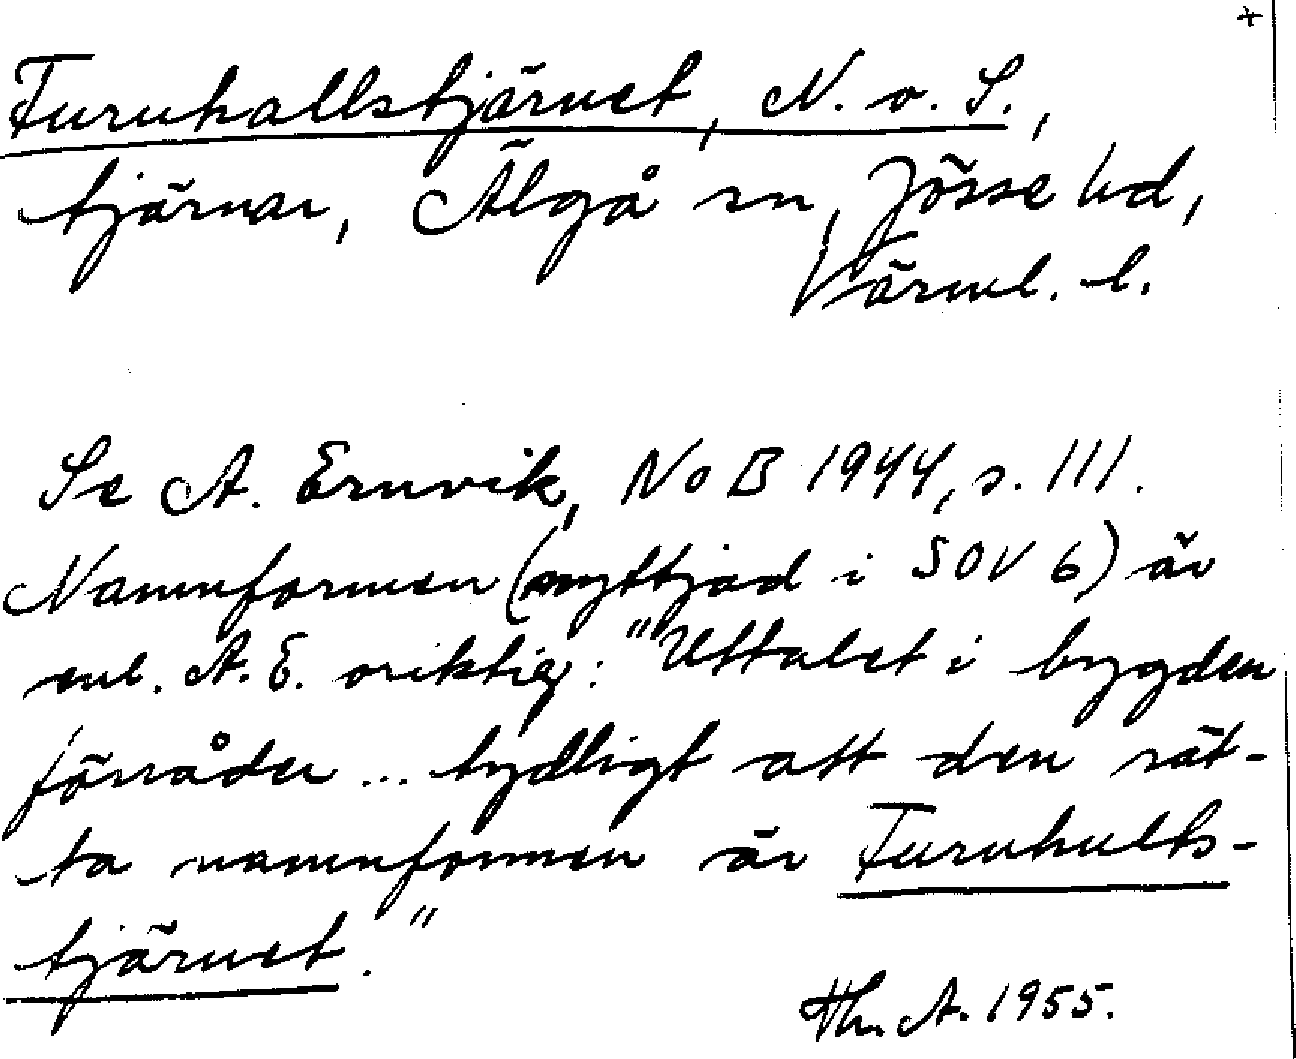 +
Furuhallstjärnet, N. o. S.,
tjärnar, Älgå sn, Jösse hd,
Värml. l.
Se A. Ernvik, NoB 1944, s. 111.
Namnformen (nyttjad i SOV 6) är
enl. A. E. oriktig: "Uttalet i bygden
förråder ... tydligt att den rät-
ta namnformen är Furuhults-
tjärnet."
Hh. A. 1955.